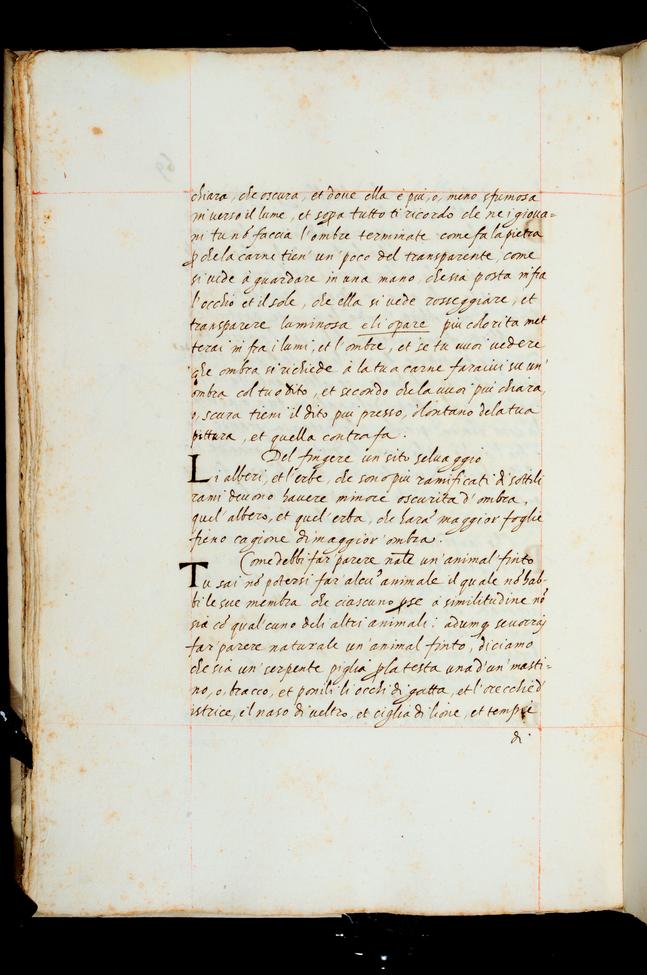 chiara, che oscura, et doue ella è piu, o, meno sfumosa
in uerso il lume, et sopa tutto ti ricordo che ne i gioua=
ni tu nō faccia l'ombre terminate come fa la pietra
ꝑche la carne tien' un' poco del transparente, come
si uede à guardare in una mano, che sia posta in fra
l'occhio et il sole, che ella si uede rosseggiare, et
transparere luminosa e li opare piu colorita met
terai in fra i lumi, et l'ombre, et se tu uuoi uedere
che ombra si richiede à la tua carne faraiui su un'
ombra col tuo dito, et secondo che la uuoi piu chiara,
o, scura tieni il dito piu presso, ò lontano dela tua
pittura, et quella contrafa.
Del fingere un' sito seluaggio
Li alberi, et l'erbe, che sono piu ramificati di sottili
rami deuono hauere minore oscurità d'ombra,
quel' albero, et quel' erba, che harà maggior' foglie
fieno cagione di maggior' ombra.
Come debbi far' parere nãle un' animal finto
Tu sai nō potersi far' alcū animale il quale nō hab-
bi le sue membra che ciascuno ꝑ se à similitudine nō
sia cō qual'cuno deli altri animali: adunq se uorraj
far' parere naturale un' animal finto, diciamo
che sia un' serpente piglia ꝑ la testa una d'un' masti=
no, o, bracco, et ponili li occhi di gatta, et l'orecchie d'
istrice, il naso di ueltro, et ciglia di lione, et tempie
di